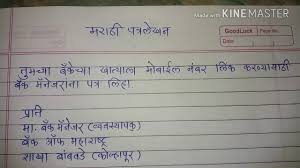 Made with KINEMASTER
GoodLuck
Page No.
Date
मराठी पत्रलेखन
तुमच्या बँकेच्या खात्याला मोबाईल नंबर लिंक करण्यासाठी
बँक मॅनेजरांना पत्र लिहा.
प्रति
मा. बँक मॅनेजर (व्यवस्थापक)
बँक ऑफ महाराष्ट्र
साखा बांबवडे (कोल्हापूर)